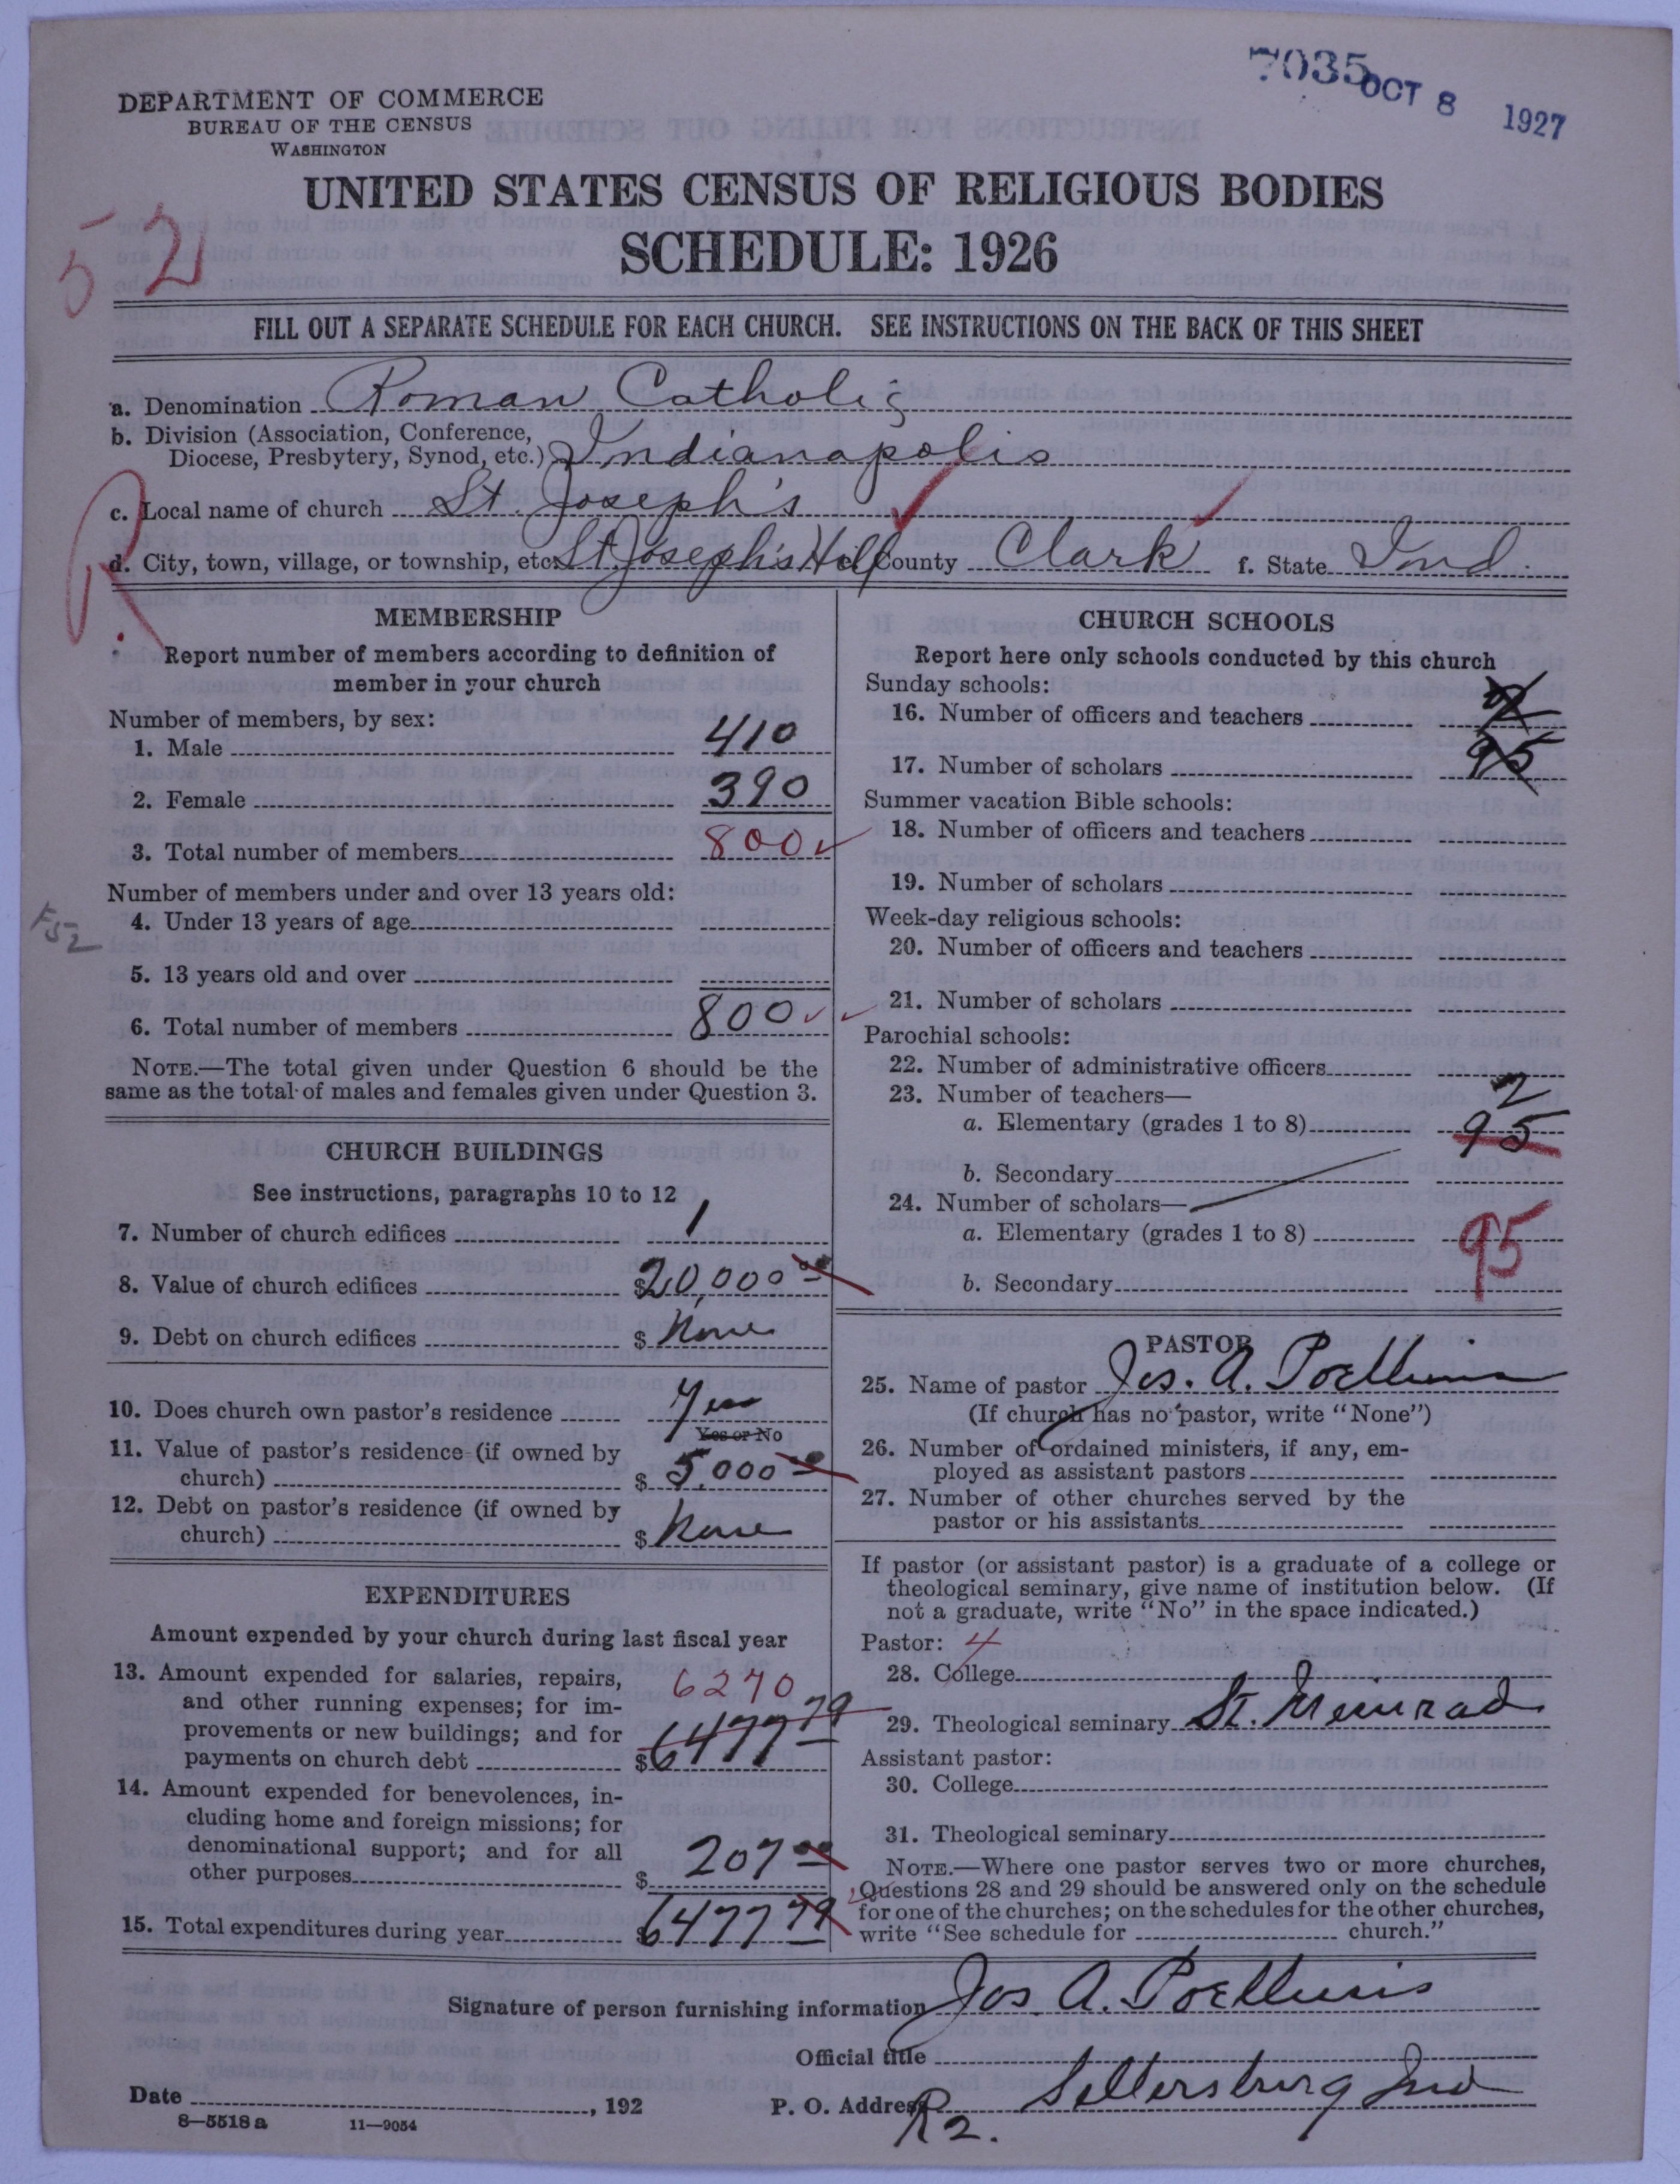 7035 OCT 8 1927
DEPARTMENT OF COMMERCE
BUREAU OF THE CENSUS
WASHINGTON
UNITED STATES CENSUS OF RELIGIOUS BODIES
SCHEDULE: 1926
52
FILL OUT A SEPARATE SCHEDULE FOR EACH CHURCH. SEE INSTRUCTIONS ON THE BACK OF THIS SHEET
a. Denomination Roman Catholic
b. Division (Association, Conference,
Diocese, Presbytery, Synod, etc.) Indianapolis
c. Local name of church St. Joseph's
d. City, town, village, or township, etc. St. Joseph's Hill County Clark f. State Ind.
R
MEMBERSHIP
Report number of members according to definition of
member in your church
Number of members, by sex:
1. Male 410
2. Female 390
3. Total number of members 800
Number of members under and over 13 years old:
4. Under 13 years of age
F52
5. 13 years old and over
6. Total number of members 800
NOTE.—The total given under Question 6 should be the
same as the total of males and females given under Question 3.
CHURCH BUILDINGS
See instructions, paragraphs 10 to 12
7. Number of church edifices 1
8. Value of church edifices $20,000 00
9. Debt on church edifices $ None
10. Does church own pastor's residence Yes
Yes or No
11. Value of pastor's residence (if owned by
church) $ 5.000 00
12. Debt on pastor's residence (if owned by
church) $ None
EXPENDITURES
Amount expended by your church during last fiscal year
13. Amount expended for salaries, repairs, 6270
and other running expenses; for im-
provements or new buildings; and for
payments on church debt $6477 79
14. Amount expended for benevolences, in-
cluding home and foreign missions; for
denominational support; and for all
other purposes $ 207 00
15. Total expenditures during year $6477 79
CHURCH SCHOOLS
Report here only schools conducted by this church
Sunday schools:
16. Number of officers and teachers 2
17. Number of scholars 95
Summer vacation Bible schools:
18. Number of officers and teachers
19. Number of scholars
Week-day religious schools:
20. Number of officers and teachers
21. Number of scholars
Parochial schools:
22. Number of administrative officers
23. Number of teachers— 2
a. Elementary (grades 1 to 8) 95
b. Secondary
24. Number of scholars—
a. Elementary (grades 1 to 8) 95
b. Secondary
PASTOR
25. Name of pastor Jos. A. Poelhuis
(If church has no pastor, write "None")
26. Number of ordained ministers, if any, em-
ployed as assistant pastors
27. Number of other churches served by the
pastor or his assistants
If pastor (or assistant pastor) is a graduate of a college or
theological seminary, give name of institution below. (If
not a graduate, write "No" in the space indicated.)
Pastor: 4
28. College
29. Theological seminary St. Meinrad
Assistant pastor:
30. College
31. Theological seminary
NOTE.—Where one pastor serves two or more churches,
Questions 28 and 29 should be answered only on the schedule
for one of the churches; on the schedules for the other churches,
write "See schedule for church."
Signature of person furnishing information Jos. A. Poelhuis
Official title
Date , 192 P. O. Address Sellersburg Ind
R2.
8—5518a 11—9054